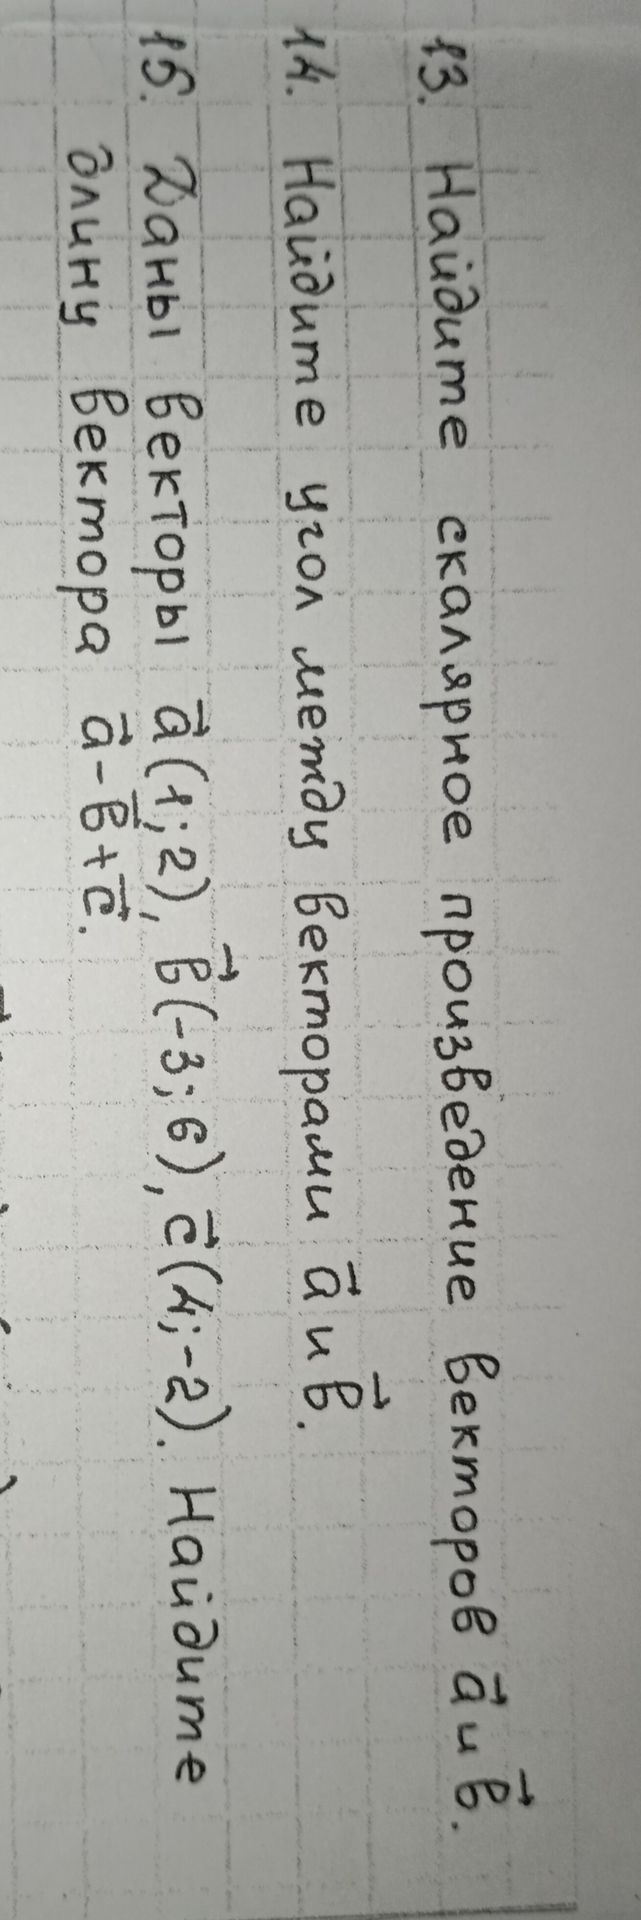 13. Найдите скалярное произведение векторов a⃗ и b⃗.
14. Найдите угол между векторами a⃗ и b⃗.
15. Даны векторы a⃗(1;2), b⃗(-3;6), c⃗(4;-2). Найдите
длину вектора a⃗-b⃗+c⃗.